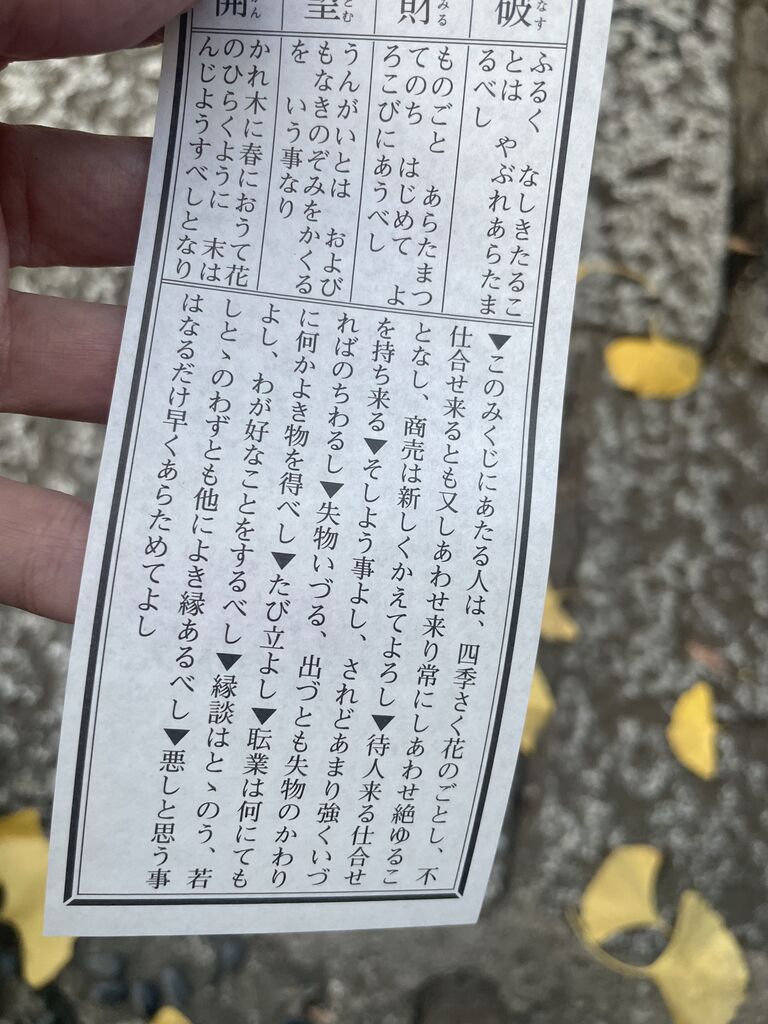 破
なす
ふるく なしきたるこ
とは やぶれあらたま
るべし
財
みる
ものごと あらたまつ
てのち はじめて よ
ろこびにあうべし
とむ
うんがいとは および
もなきのぞみをかくる
を いう事なり
開
かん
かれ木に春におうて花
のひらくように 末は
んじようすべしとなり
▼このみくじにあたる人は、四季さく花のごとし、不
仕合せ来るとも又しあわせ来り常にしあわせ絶ゆるこ
となし、商売は新しくかえてよろし▼待人来る仕合せ
を持ち来る▼そしよう事よし、されどあまり強くいづ
ればのちわるし▼失物いづる、出づとも失物のかわり
に何かよき物を得べし▼たび立よし▼転業は何にても
よし、わが好なことをするべし▼縁談はとゝのう、若
しとゝのわずとも他によき縁あるべし▼悪しと思う事
はなるだけ早くあらためてよし